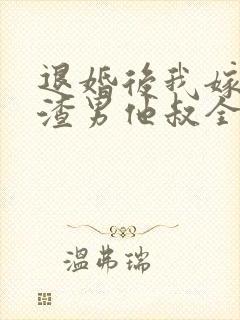 退婚後我嫁
渣男他叔全
温弗瑞